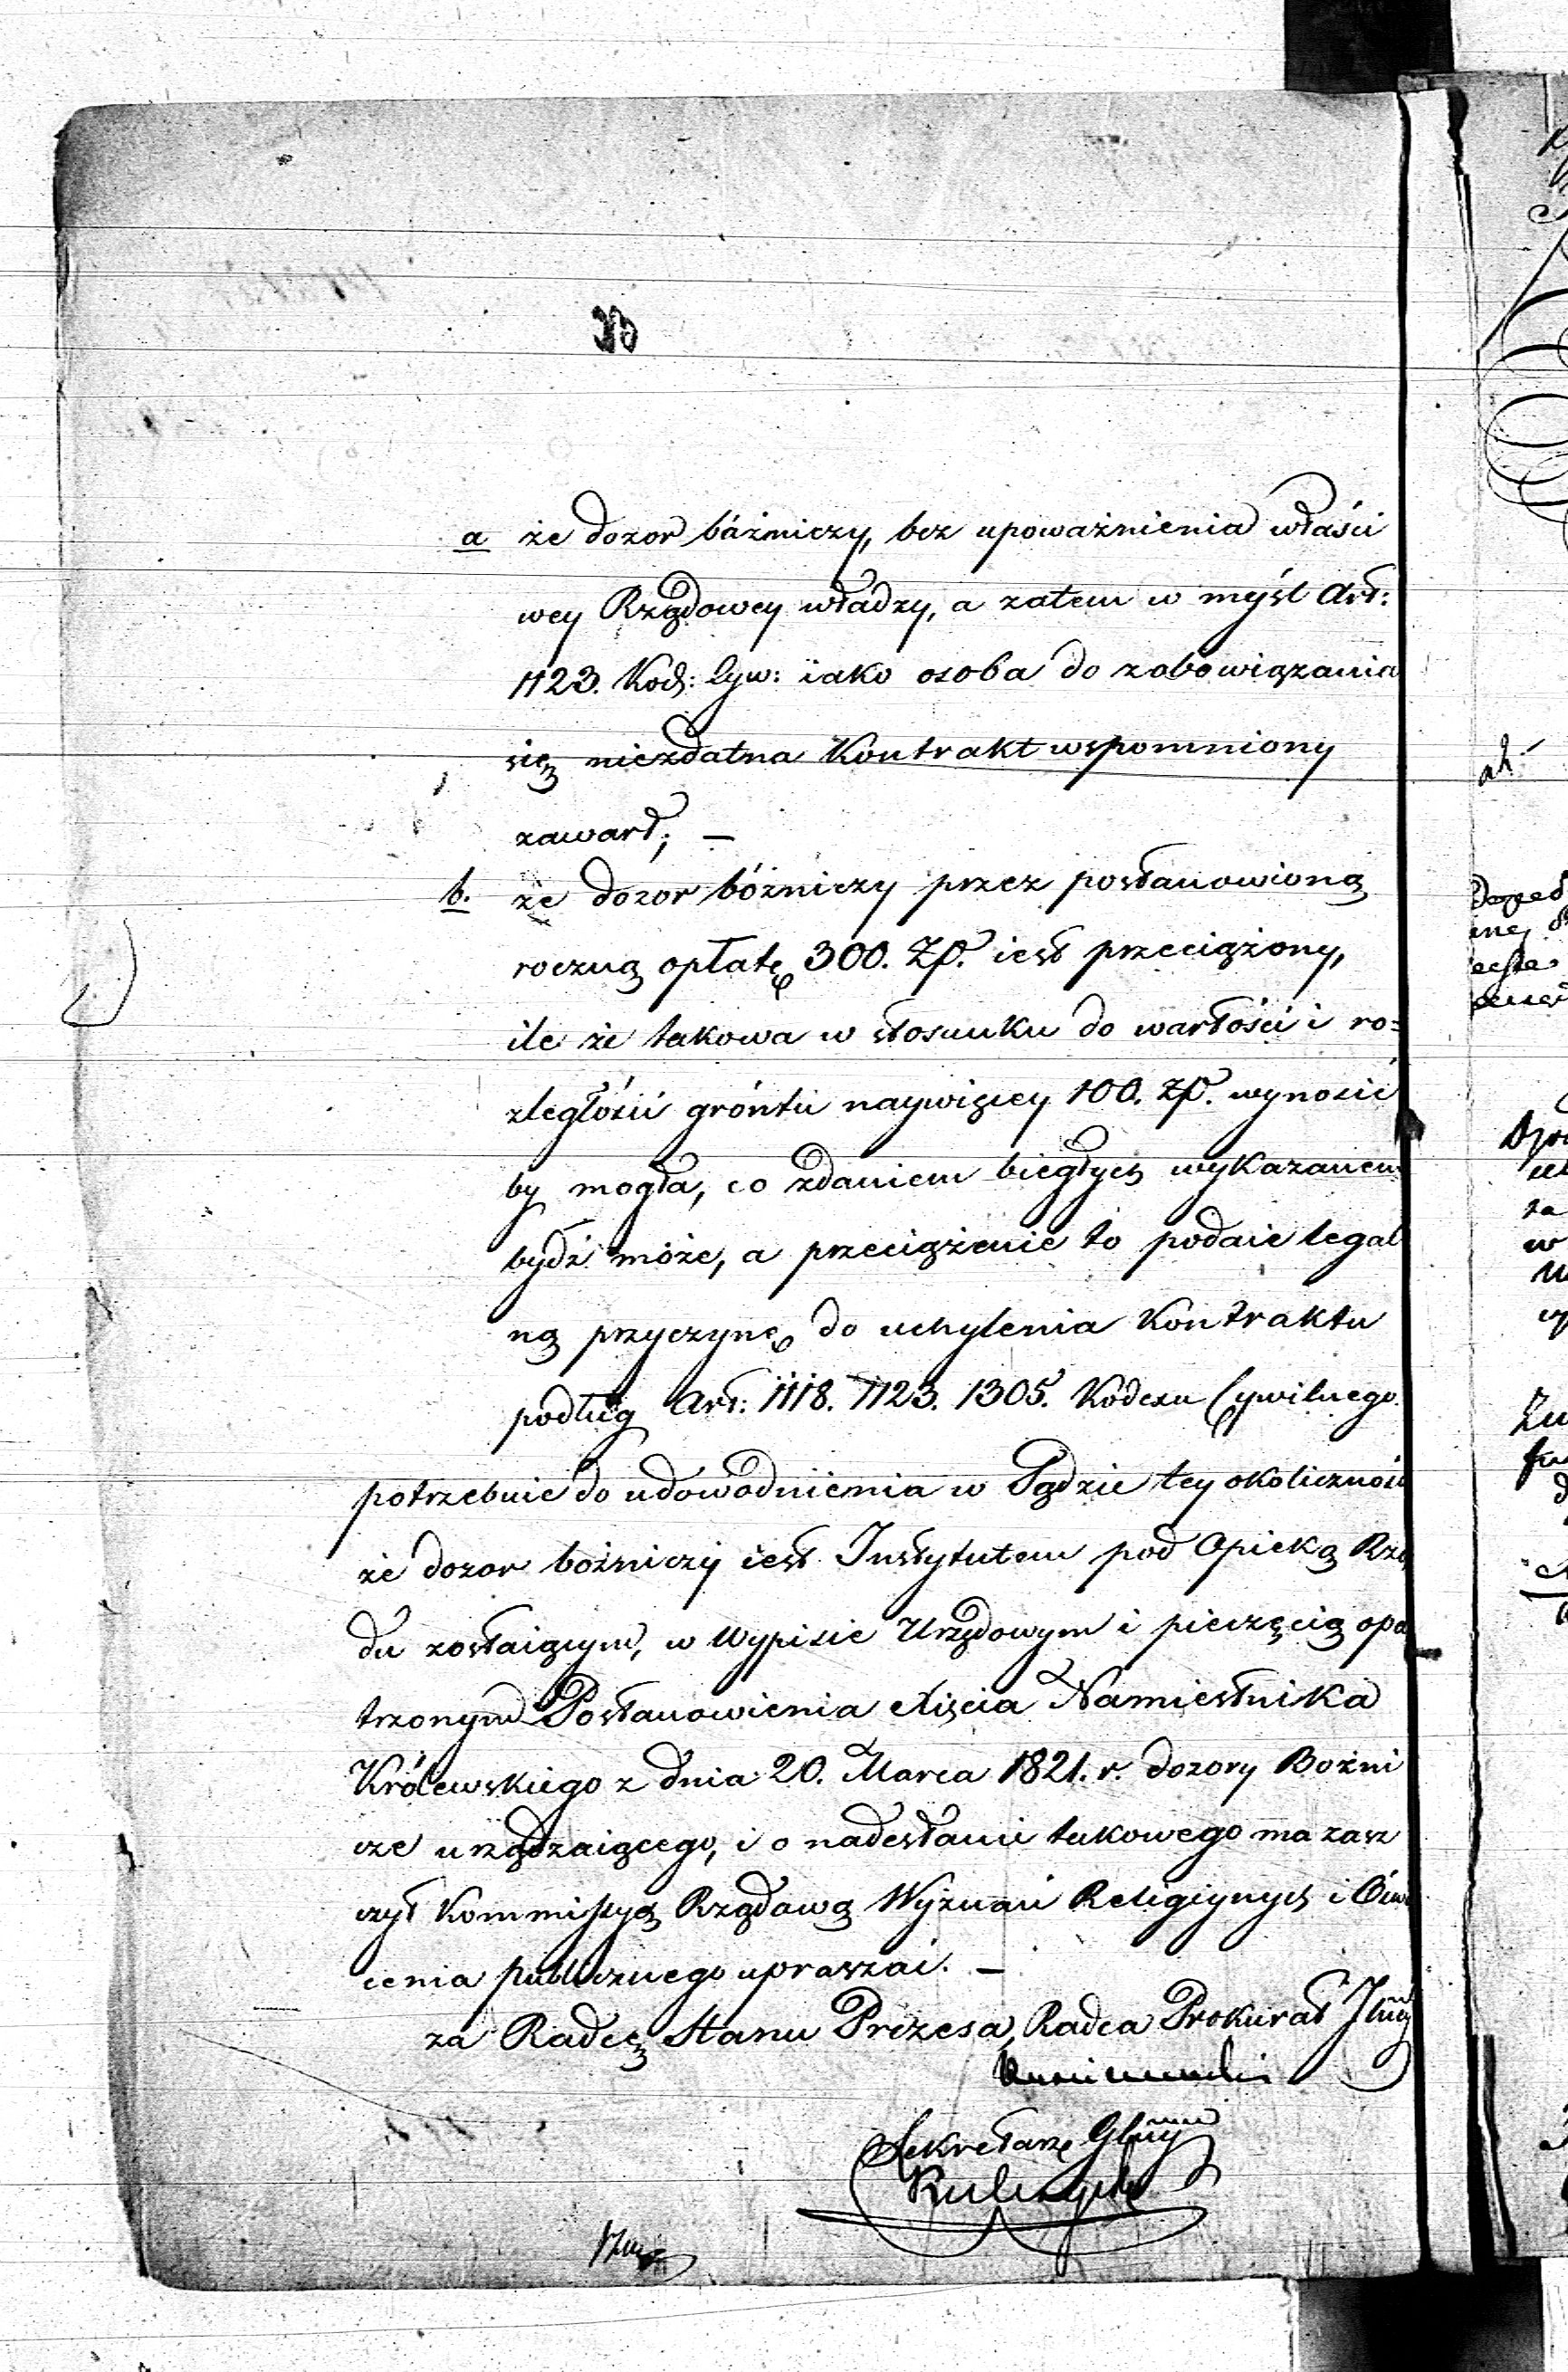 a że dozor bóżniczy, bez upoważnienia właści
wey Rządowey władzy, a zatem w myśl Art:
1123. Kod: Cyw: iako osoba do zobowiązania
się niezdatna Kontrakt wspomniony
zawarł; —
b. że dozor bóżniczy przez postanowioną
roczną opłatę 300. Zp. iest przeciążony,
ile że takowa w stosunku do wartości i ro=
zległości gróntu naywięcey 100. Zp. wynosić
by mogła, co zdaniem biegłych wykazanem
bydź może, a przeciążenie to podaie legal
ną przyczynę do uchylenia Kontraktu
podług Art: 1118. 1123. 1305. Kodexu Cywilnego.
potrzebuie do udowodnienia w Sądzie tey okoliczności
że dozor bożniczy iest Instytutem pod Opieką Rzą
du zostaiącym, w Wypisie Urzędowym i pieczęcią opa
trzonym Postanowienia Xięcia Namiestnika
Królewskiego z dnia 20. Marca 1821. r. dozory Bożni
cze urządzaiącego, i o nadesłanie takowego ma zasz
czyt Kommissyą Rządową Wyznań Religiynych i Oświe
cenia publicznego upraszać. —
za Radcę Stanu Prezesa, Radca Prokurat
Sekretarz